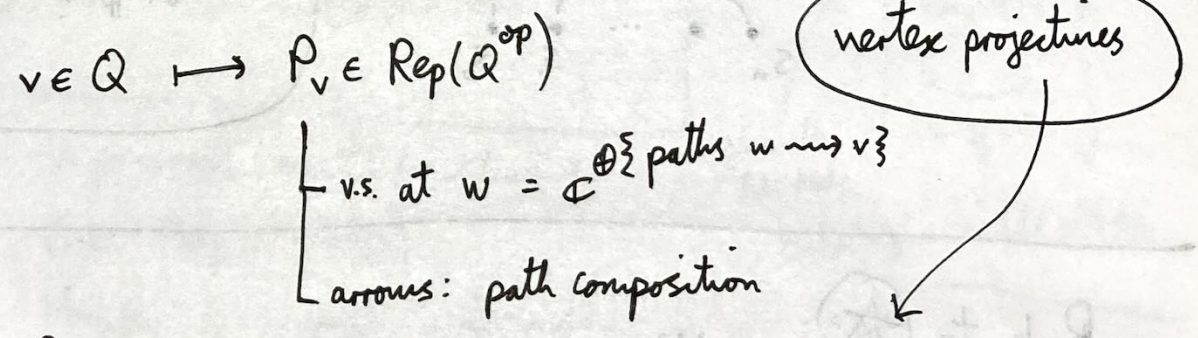 v ∈ Q ⟼ P_v ∈ Rep(Q^op)
vertex projectives
v.s. at w = ℂ^⊕{paths w ⇝ v}
arrows: path composition